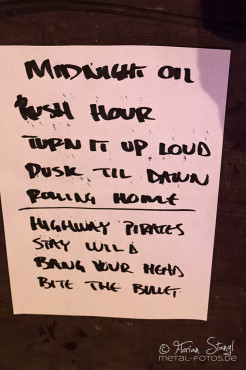 MIDNIGHT OIL
RUSH HOUR
TURN IT UP LOUD
DUSK TIL DAWN
ROLLING HOME
HIGHWAY PIRATES
STAY WILD
BANG YOUR HEAD
BITE THE BULLET
© Florian Stangl
METAL-FOTOS.DE